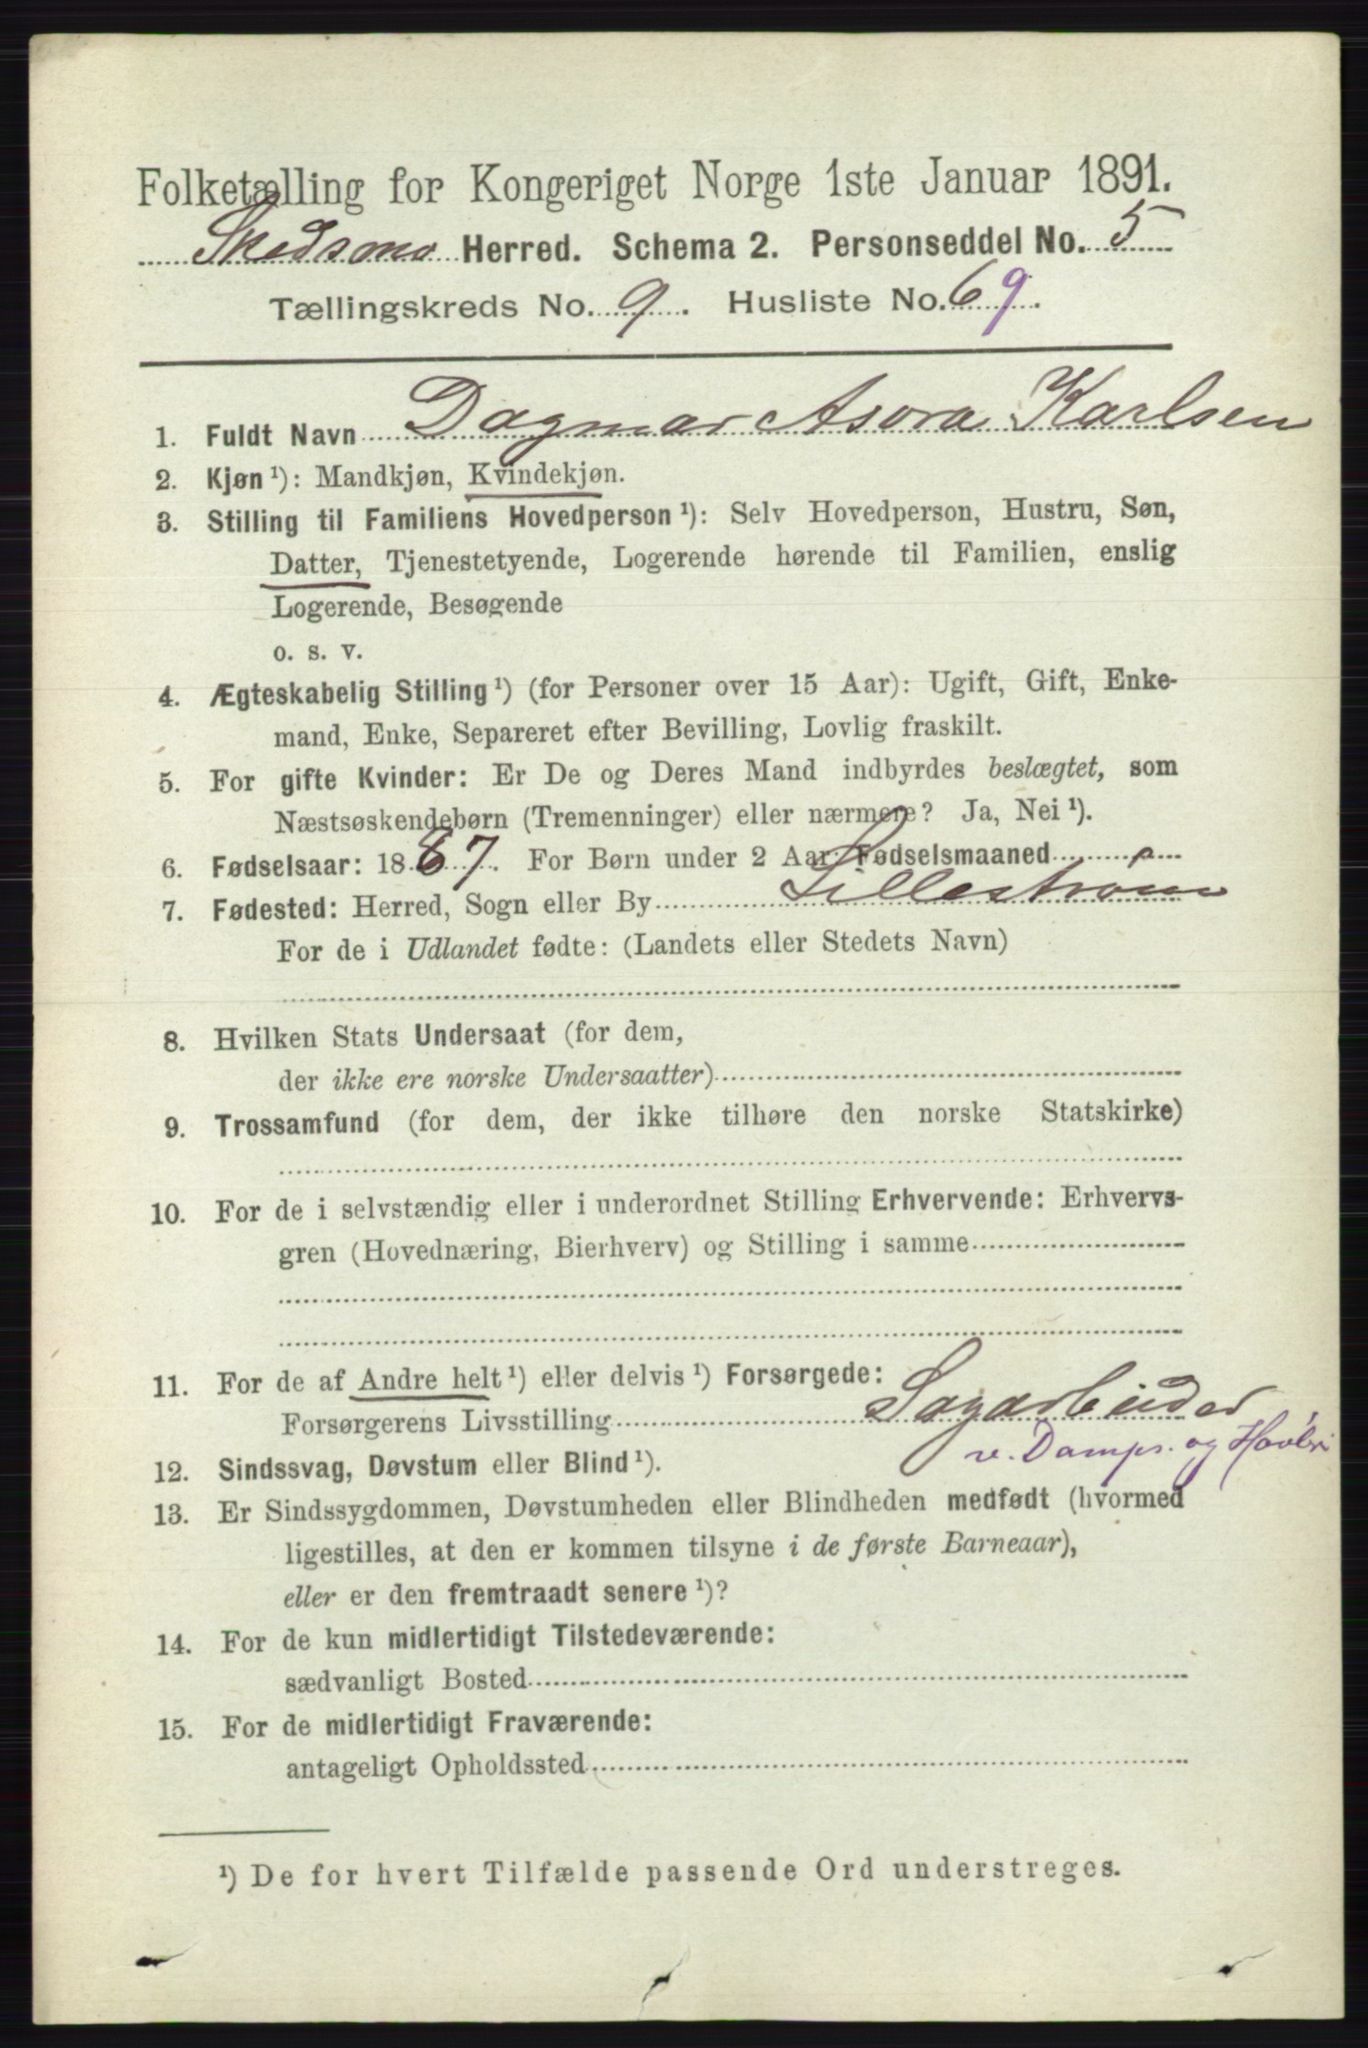 Folketælling for Kongeriget Norge 1ste Januar 1891.
Skedsmo Herred. Schema 2. Personseddel No. 5
Tællingskreds No. 9. Husliste No. 69.
1. Fuldt Navn Dagmar Asora Karlsen
2. Kjøn ¹): Mandkjøn, Kvindekjøn.
3. Stilling til Familiens Hovedperson ¹): Selv Hovedperson, Hustru, Søn,
Datter, Tjenestetyende, Logerende hørende til Familien, enslig
Logerende, Besøgende
o. s. v.
4. Ægteskabelig Stilling ¹) (for Personer over 15 Aar): Ugift, Gift, Enke-
mand, Enke, Separeret efter Bevilling, Lovlig fraskilt.
5. For gifte Kvinder: Er De og Deres Mand indbyrdes beslægtet, som
Næstsøskendebørn (Tremenninger) eller nærmere? Ja, Nei ¹).
6. Fødselsaar: 1887. For Børn under 2 Aar: Fødselsmaaned
7. Fødested: Herred, Sogn eller By Lillestrøm
For de i Udlandet fødte: (Landets eller Stedets Navn)
8. Hvilken Stats Undersaat (for dem,
der ikke ere norske Undersaatter)
9. Trossamfund (for dem, der ikke tilhøre den norske Statskirke)
10. For de i selvstændig eller i underordnet Stilling Erhvervende: Erhvervs-
gren (Hovednæring, Bierhverv) og Stilling i samme
11. For de af Andre helt ¹) eller delvis ¹) Forsørgede:
Forsørgerens Livsstilling Sagarbeider
v. Damps. og Høvleri
12. Sindssvag, Døvstum eller Blind ¹).
13. Er Sindssygdommen, Døvstumheden eller Blindheden medfødt (hvormed
ligestilles, at den er kommen tilsyne i de første Barneaar),
eller er den fremtraadt senere ¹)?
14. For de kun midlertidigt Tilstedeværende:
sædvanligt Bosted
15. For de midlertidigt Fraværende:
antageligt Opholdssted
¹) De for hvert Tilfælde passende Ord understreges.